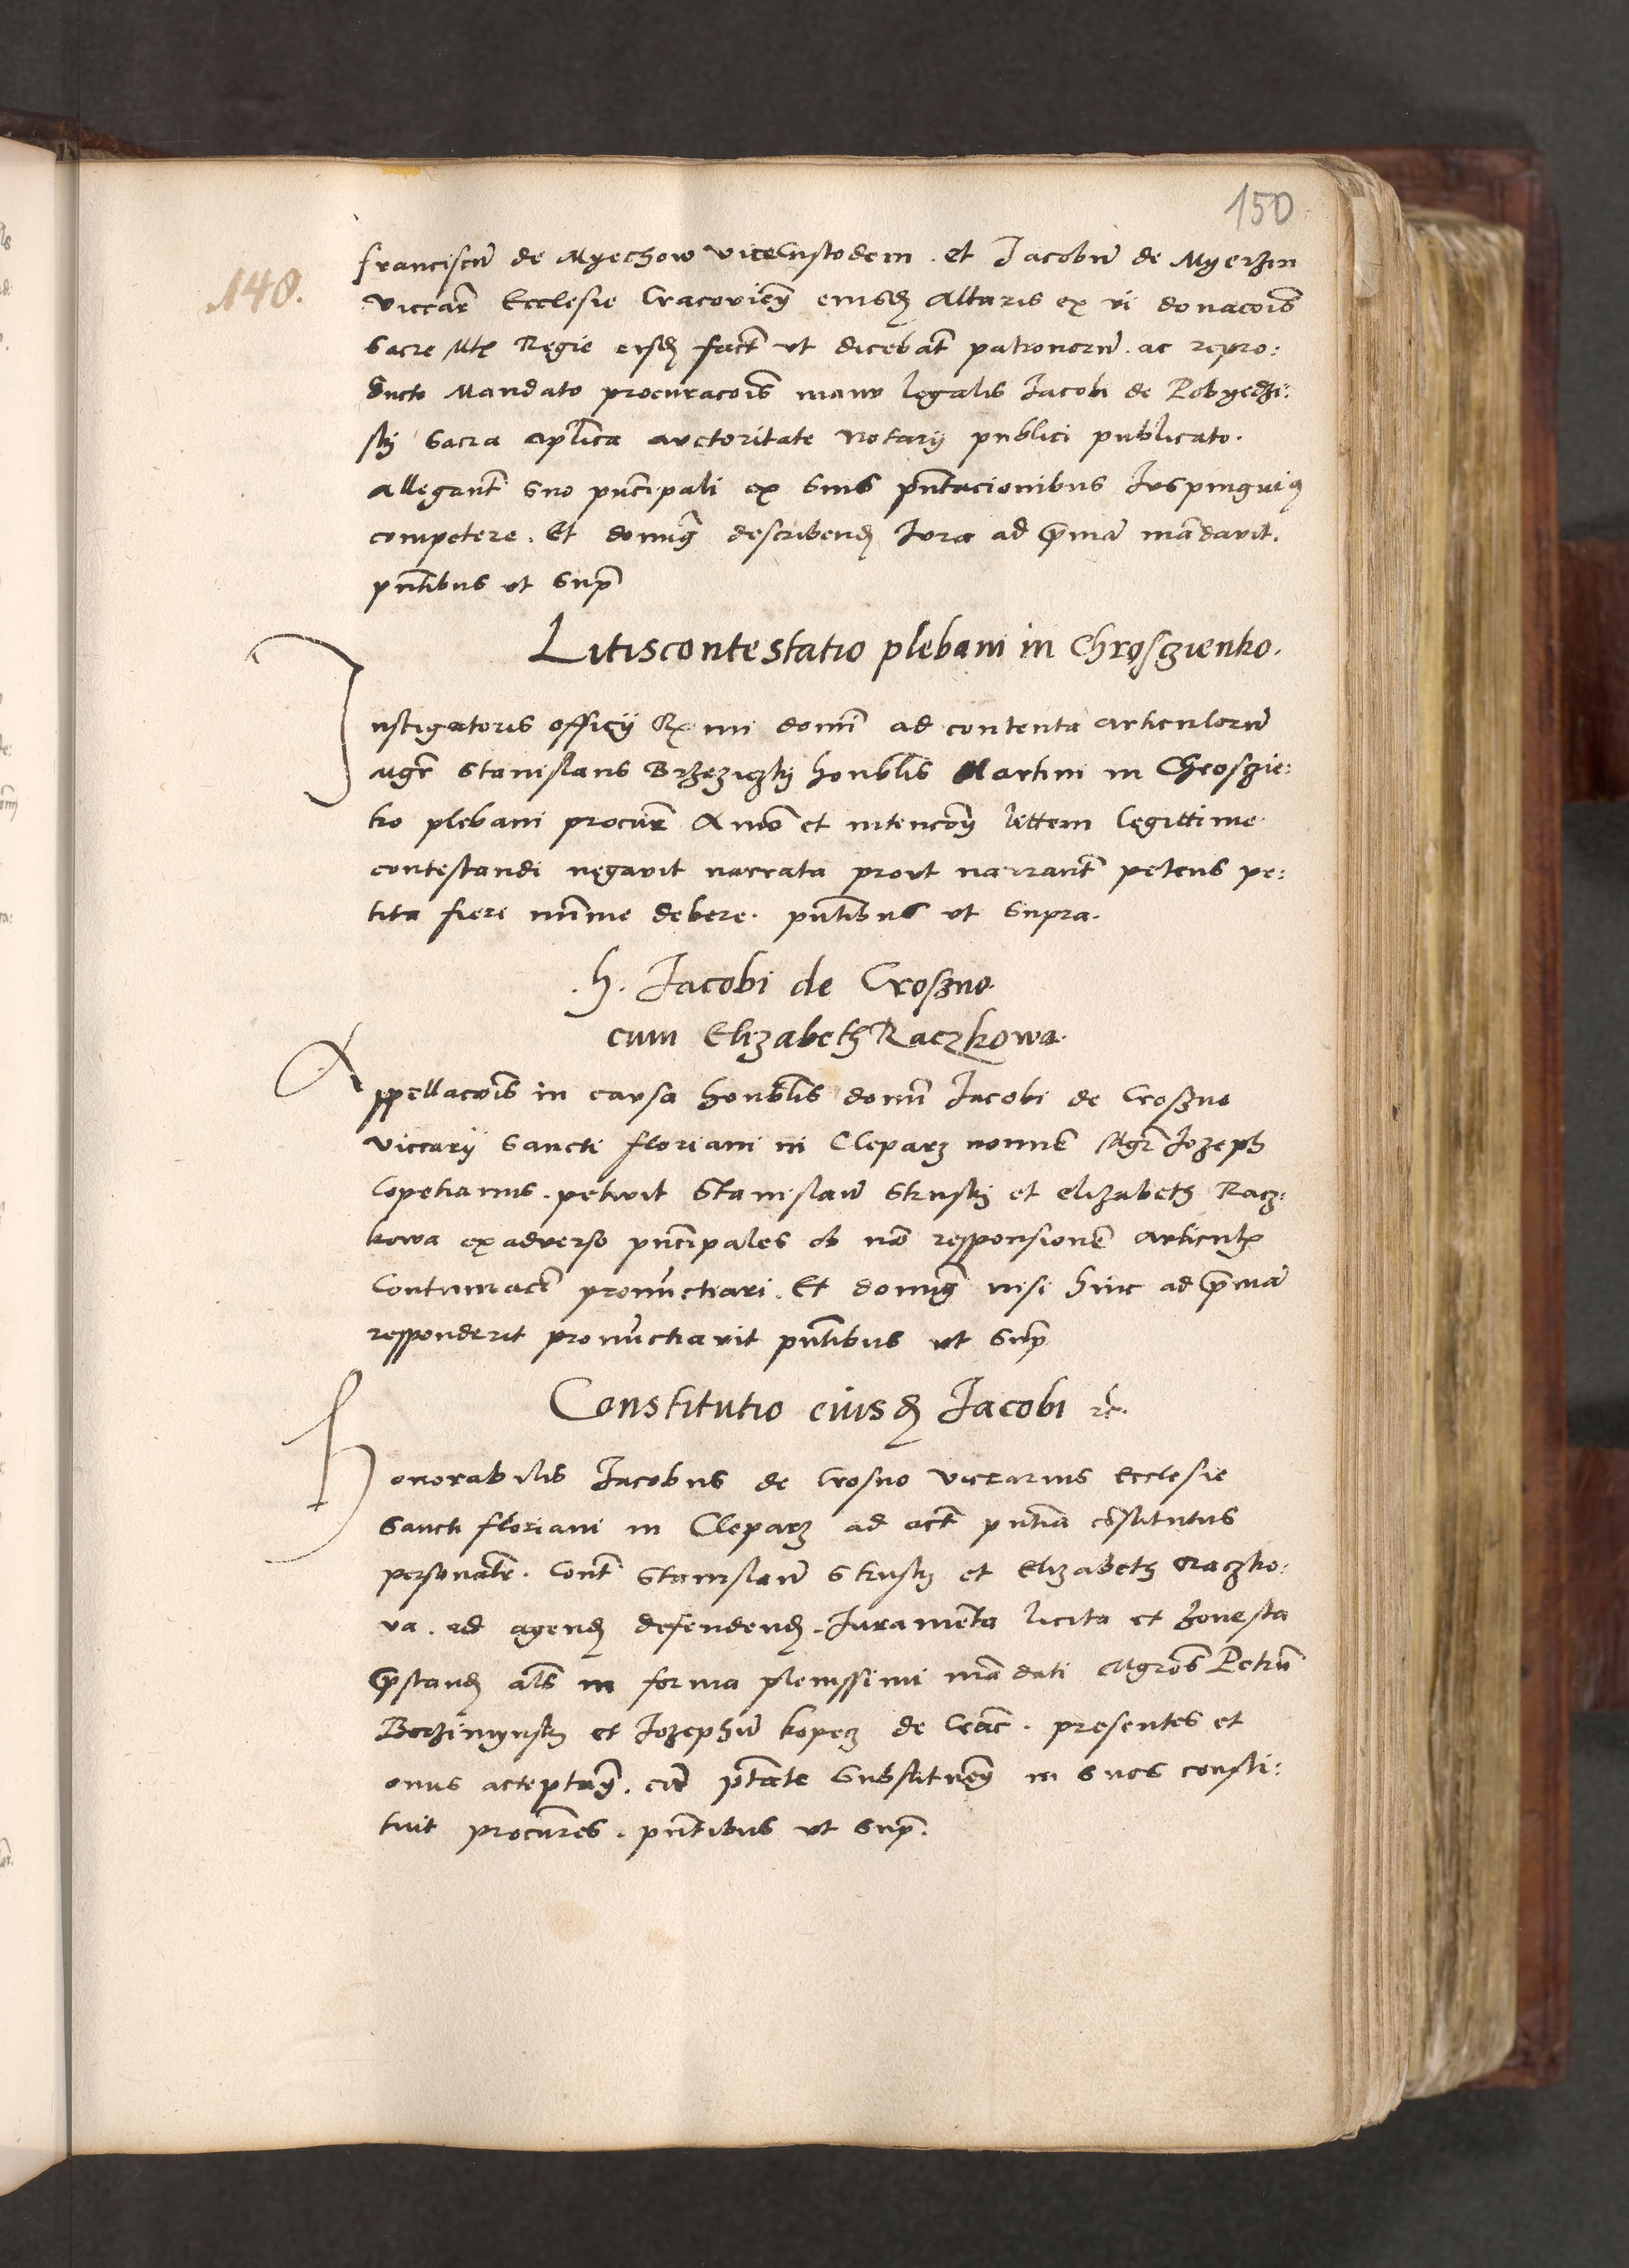 150
148.
franciscū de Myechow viceCustodem . et Jacobū de Myerzin
viccar̄ Ecclesie Cracovień eiusd altaris ex vi donacōis
Sacre Mtis Regie eisd fact̄ ut dicebāt patronorū . ac repro:
ducto Mandato procuracōis manu legalis Jacobi de Pobyedzi:
sky Sacra aplica auctoritate Notarij publici publicato .
allegant̄ suo pñcipali ex suis pñtacionibus Ius pinguiq
competere . Et dominꝗ describend Iura ad p̄mā mādavit .
pñtibus ut supͣ
Litiscontestatio plebani in Chrosczienko .
Instigatoris officij Rmi domī ad contenta articulorū
Mgr̄ Stanislaus Brzeziczky honblis Martini in Chrosczie:
ko plebani procur̄ Aīo et intencōn littem legittime
contestandi negavit narrata prout narrant̄ petens pe:
tita fieri minime debere . pñtibus ut supra .
. h . Jacobi de Croszno
cum Elizabeth Raczkowa .
Appellacōis in causa honblis domī Jacobi de Croszno
viccarij Sancti floriani in Cleparz nomīe Mgr̄ Jozeph
Copetianus . petivit Stanislaū Skusky et elizabeth Racz:
kowa ex adverso pñcipales ob nō responsionē articulꝝ
Contumaces pronūctiari . Et dominꝗ nisi hinc ad p̄mā
responderit pronūctiavit pñtibus ut supͣ
Constitutio eiusd Jacobi rc.
Honorabilis Jacobus de Crosno vicrarius Ecclesie
Sancti floriani in Cleparz ad act̄ pñtiā cōstitutus
personalr̄ . Cont̄ Stanislaū Skusky et Elizabeth Raczko:
va . ad agend defendend . Juramenta licita et honesta
p̄stand als in forma plenissimi mādati Mgros Petrū
Borzimynsky et Jozephū kopecz de Crac̄ . presentes et
onus acceptań . cū ptāte substituen in suos consti:
tuit procures . pñtibus ut supͣ .